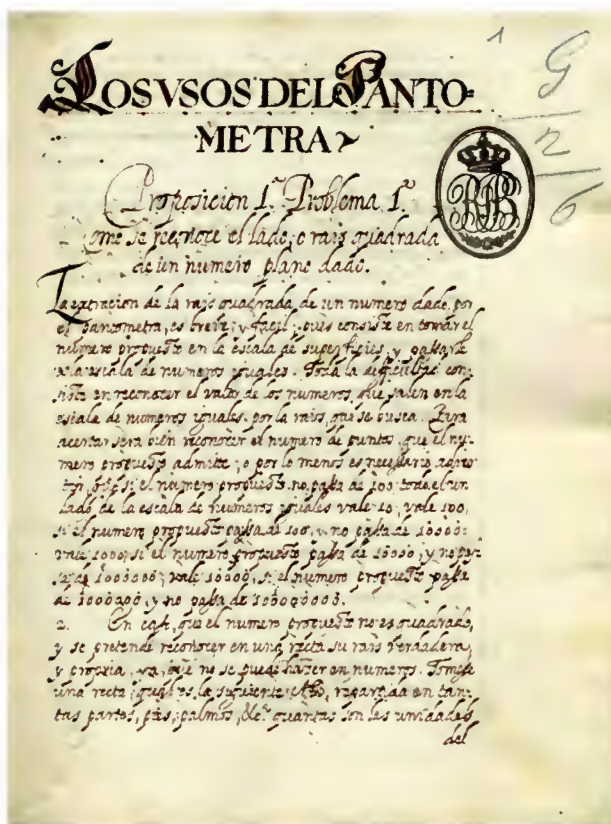 1
G
2
6
LOS VSOS DEL PANTO=
METRA
Proposicion 1.ª Problema 1.º
Como se reconoce el lado, o rais quadrada
de un numero plano dado.
La extracion de la rais quadrada, de un numero dado, por
el Pantometra, es breve, y facil; pues consiste en tomar el
numero propuesto en la escala de superficies, y passarle
a la escala de numeros yguales. Toda la dificultad con-
siste en reconocer el valor de los numeros, que salen en la
escala de numeros yguales, por la rais, que se busca. Para
acertar sera bien reconocer el numero de puntos, que el nu-
mero propuesto admitte; o por lo menos es necessario
si el numero propuesto no passa de 100 todo el un
lado de la escala de numeros yguales vale 10; vale 100,
si el numero propuesto passa de 100, y no passa de 10000:
vale 1000; si el numero propuesto passa de 10000, y no pas-
sa de 1000000; vale 10000, si el numero propuesto passa
de 1000000, y no passa de 100000000.
2. En caso, que el numero propuesto no es quadrado,
y se pretende reconocer en una recta su rais verdadera,
y propria, ya, que no se puede hazer en numeros. Tomese
una recta, qual es la siguiente repartida en tan-
tas partes, pies, palmos, &c.ª quantas son las unidades
del